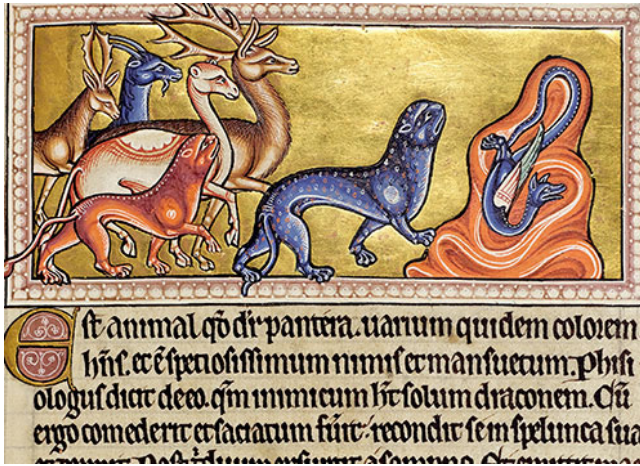 Est animal qd̄ dr̄ pantera. uarium quidem colorem
hn̄s. et ē spetiosissimum nimis et mansuetum. Phisi
ologus dicit de eo. qm̄ inimicum ht̄ solum draconem. Cū
ergo comederit et satiatum fũit. recondit se in spelunca sua